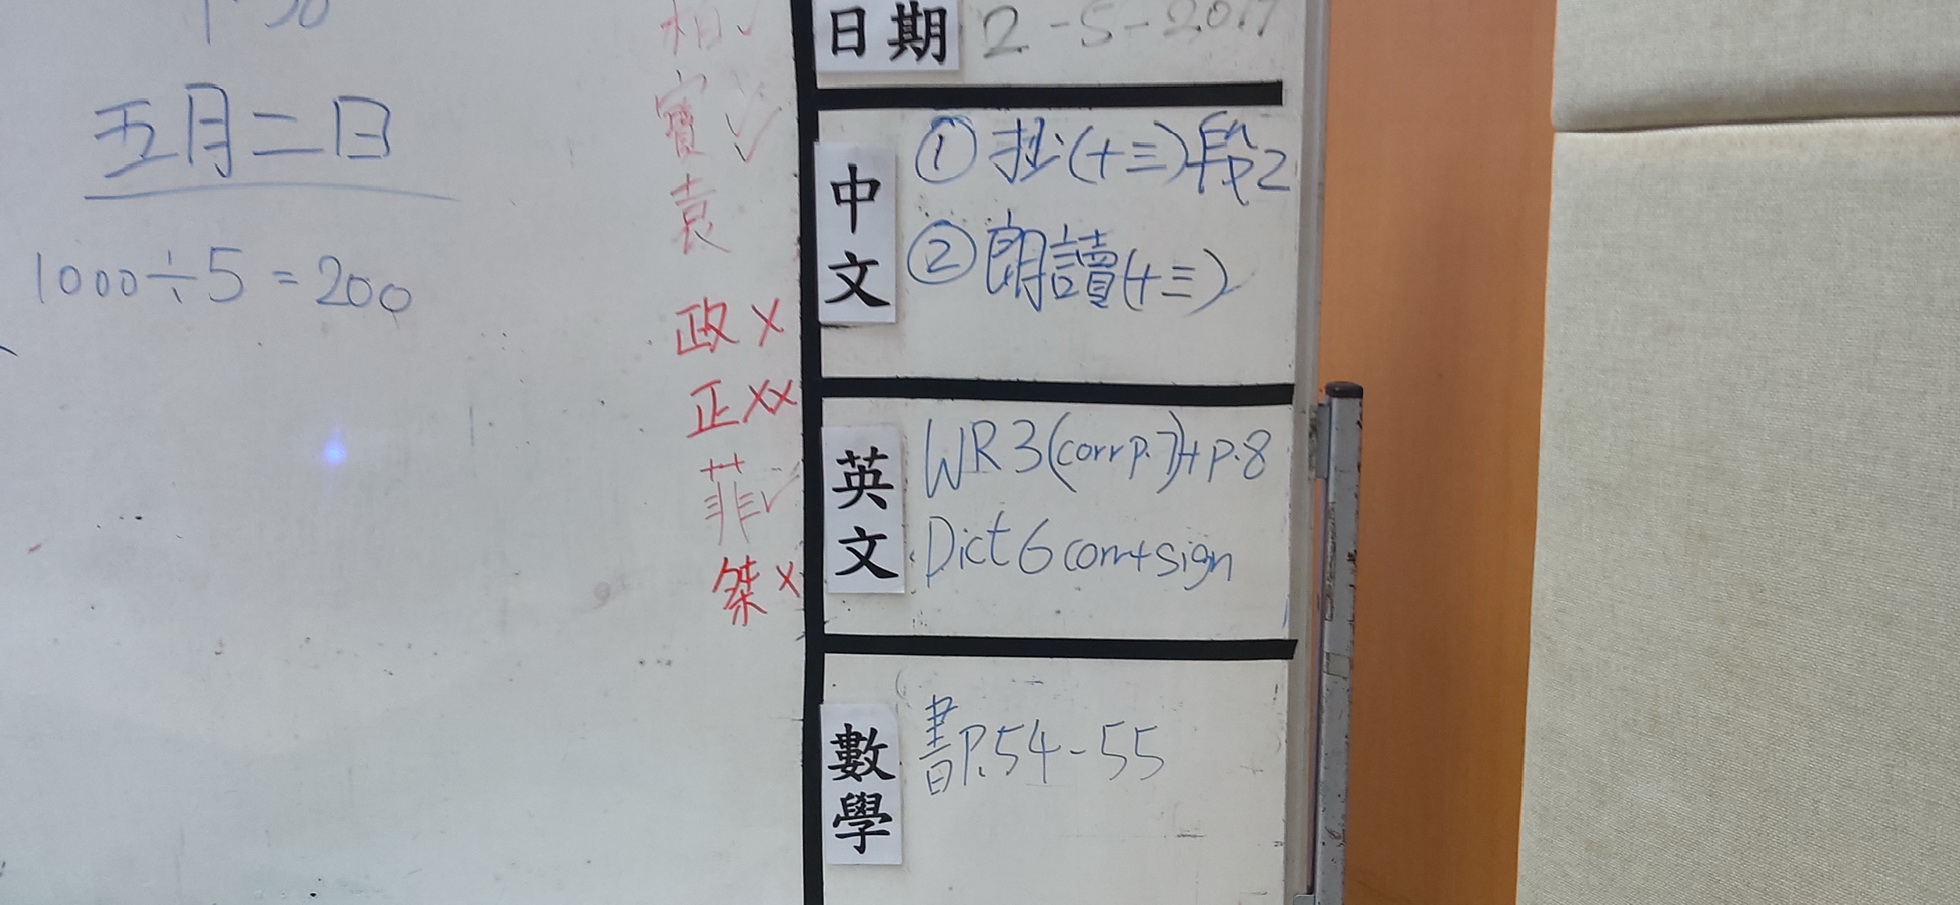 五月二日
1000÷5=200
寶 ✓✓
袁
政 ×
正 ××
菲 ✓
桀 ×
日期 2-5-2017
中文
① 抄(十三)段2
② 朗讀(十三)
英文
WR3(corr p.7)+p.8
Dict 6 corr+sign
數學
書P.54-55